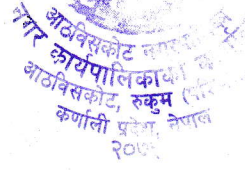 आठविसकोट नगर
नगर कार्यपालिकाको
आठविसकोट, रुकुम (
कर्णाली प्रदेश, नेपाल